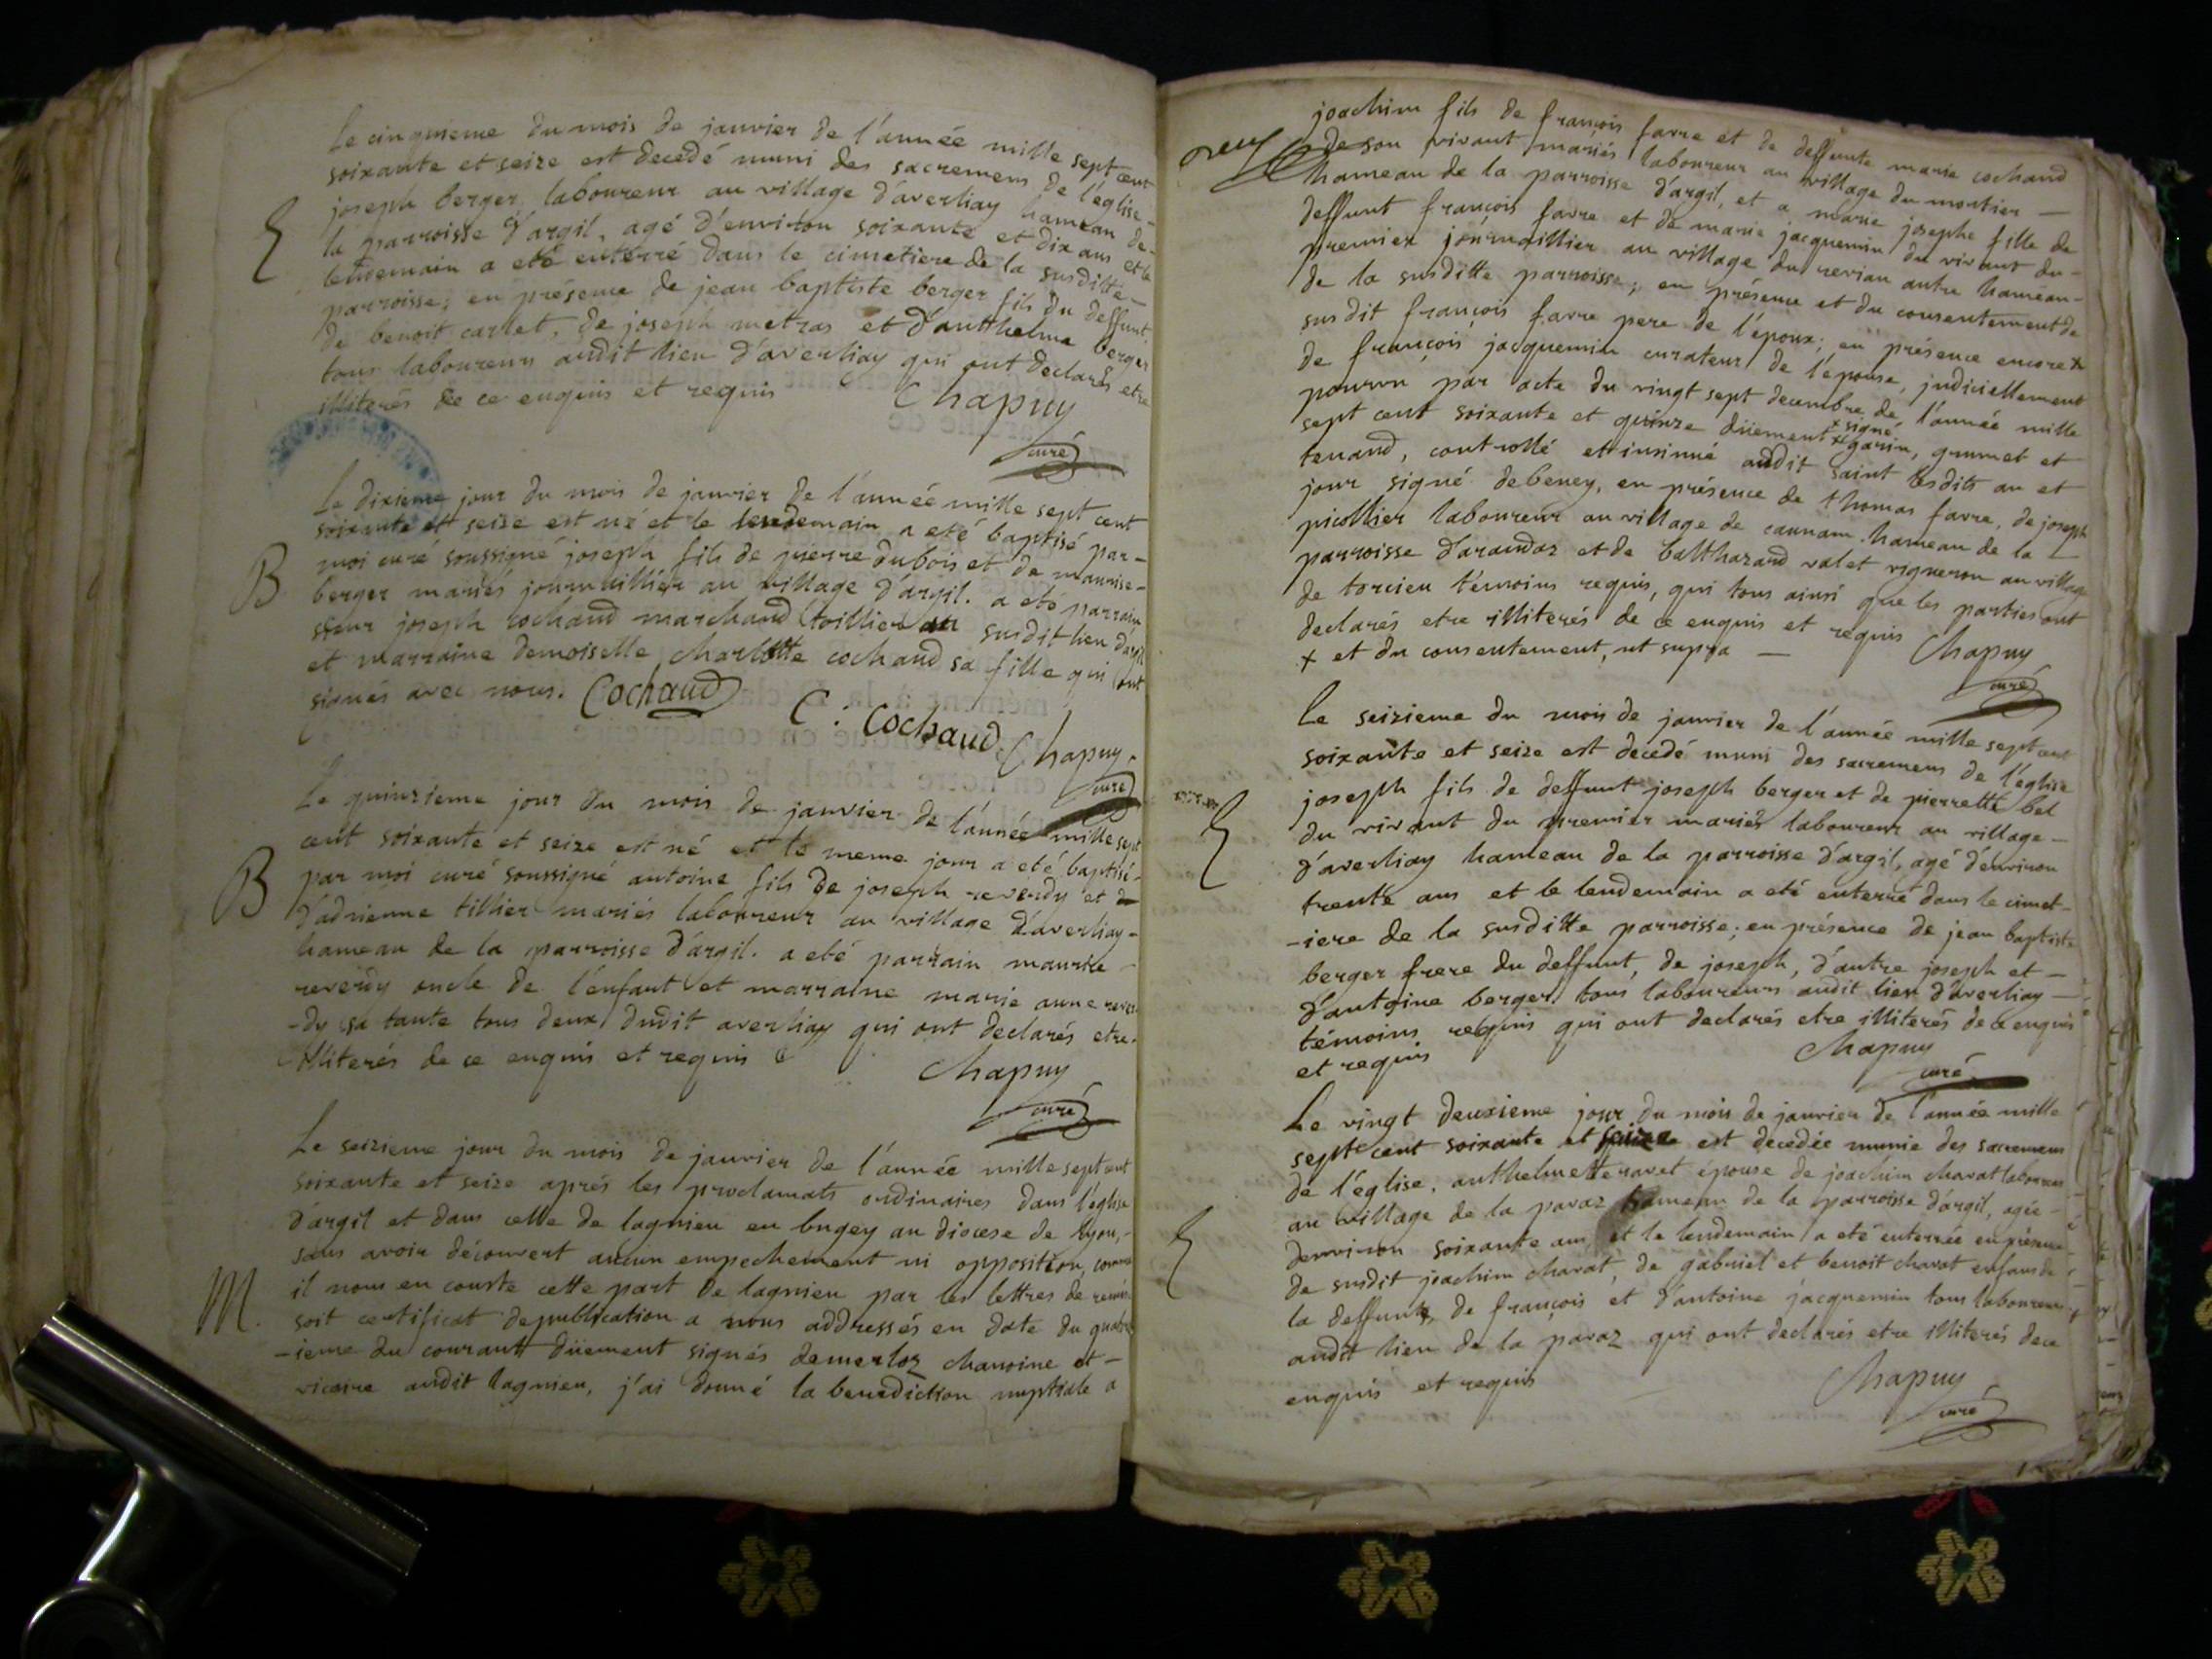 Le cinquieme du mois de janvier de l'année mille sept cent
soixante et seize est decedé muni des sacremens de l'église
joseph berger laboureur au village d'averliay hameau de
la parroisse d'argil, agé d'environ soixante et dix ans et le
lendemain a eté enterré dans le cimetiere de la susditte
parroisse; en présence de jean baptiste berger fils du deffunt
de benoit carlet, de joseph metras et d'anthelme berger
tous laboureurs audit lieu d'averliay qui ont declarés etre
illiterés de ce enquis et requis Chapuy
curé
Le dixieme jour du mois de janvier de l'année mille sept cent
soixante et seize est né et le lendemain a eté baptisé par
B moi curé soussigné joseph fils de pierre dubois et de maurise
berger mariés journaillier au village d'argil. a eté parrain
sieur joseph cochaud marchand toillier au susdit lieu d'argil
et marraine demoiselle charlotte cochaud sa fille qui ont
signés avec nous. Cochaud C. Cochaud Chapuy
curé
Le quinzieme jour du mois de janvier de l'année mille sept
cent soixante et seize est né et le meme jour a eté baptisé
B par moi curé soussigné antoine fils de joseph reverdy et
d'adrienne tillier mariés laboureur au village d'averliay
hameau de la parroisse d'argil. a eté parrain maurise
reverdy oncle de l'enfant et marraine marie anne rever
-dy sa tante tous deux dudit averliay qui ont declarés etre
illiterés de ce enquis et requis Chapuy
curé
Le seizieme jour du mois de janvier de l'année mille sept cent
soixante et seize aprés les proclamats ordinaires dans l'église
d'argil et dans celle de lagnieu en bugey au diocese de lyon,
sans avoir découvert aucun empechement ni opposition, comme
M. il nous en conste cette part de lagnieu par les lettres de remise
soit certificat de publication a nous addressés en date du quatr
-ieme du courant düement signés demerloz chanoine et
vicaire audit lagnieu, j'ai donné la benediction nuptiale a
joachim fils de françois farre et de deffunte marie cochaud
de son vivant mariés laboureur au village du montier
hameau de la parroisse d'argil, et a marie josephe fille de
deffunt françois farre et de marie jacquemin du vivant du
premier journaillier au village du nerian autre hameau
de la susditte parroisse; en présence et du consentement de
susdit françois farre pere de l'époux; en présence encore x
de françois jacquemin curateur de l'épouse, judiciellement
pourvu par acte du vingt sept decembre de l'année mille
sept cent soixante et quinze düement x signé garin, grumet et
tenand, controllé et insinué audit saint lesdits an et
jour signé debeney, en présence de thomas farre, de joseph
picollier laboureur au village de cannam hameau de la
parroisse d'arandaz et de balthazard valet vigneron au village
de torcieu témoins requis, qui tous ainsi que les parties ont
declarés etre illiterés de ce enquis et requis Chapuy
x et du consentement, ut supra curé
Le seizieme du mois de janvier de l'année mille sept cent
soixante et seize est decedé muni des sacremens de l'église
joseph fils de deffunt joseph berger et de pierrette bel
du vivant du premier mariés laboureur au village
d'averliay hameau de la parroisse d'argil, agé d'environ
trente ans et le lendemain a eté enterré dans le cimet-
-iere de la susditte parroisse; en présence de jean baptiste
berger frere du deffunt, de joseph, d'autre joseph et
d'antoine berger tous laboureurs audit lieu d'averliay
témoins requis qui ont declarés etre illiterés de ce enquis
et requis Chapuy
curé
Le vingt deuxieme jour du mois de janvier de l'année mille
sept cent soixante et seize est decedée munie des sacremens
de l'église, anthelmette ravet épouse de joachim charat laboureur
au village de la pavaz hameau de la parroisse d'argil, agée
d'environ soixante ans et le lendemain a eté enterrée en présence
de susdit joachim charat, de gabriel et benoit charat enfans de
la deffunte, de françois et d'antoine jacquemin tous laboureurs
audit lieu de la pavaz qui ont declarés etre illiterés de ce
enquis et requis Chapuy
curé